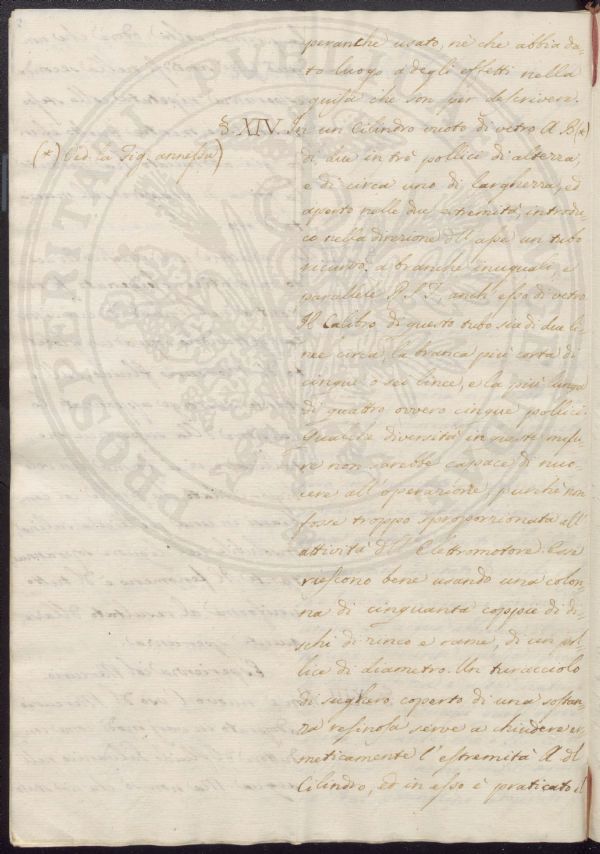 peranche usato, nè che abbia da-
to luogo a degli effetti nella
guisa che son per descrivere.
§. XIV. In un Cilindro vuoto di vetro A B (*)
(*) Ved. la Fig. annessa)
di due in trè pollici di altezza,
e di circa uno di larghezza, ed
aperto nelle due estremità, introdu-
co nella direzione dll' asse un tubo
ricurvo a branche ineguali, e
parallele anch' esso di vetro.
Il Calibro di questo tubo sia di due li-
nee circa, la branca più corta di
cinque o sei linee, e la più lunga
di quattro ovvero cinque pollici.
diversità in queste misu-
re non sarebbe capace di nuo-
cere all' operazione, purchè non
fosse troppo sproporzionata all'
attività dll' Elettromotore. Esse
riescono bene usando una colon-
na di cinquanta coppie di di-
schi di zinco e rame, di un pol-
lice di diametro. Un turacciolo
di sughero coperto di una sostan-
za resinosa serve a chiudere er-
meticamente l' estremità A dl
Cilindro, ed in esso è praticato il
PROSPERITATI PUBLICAE